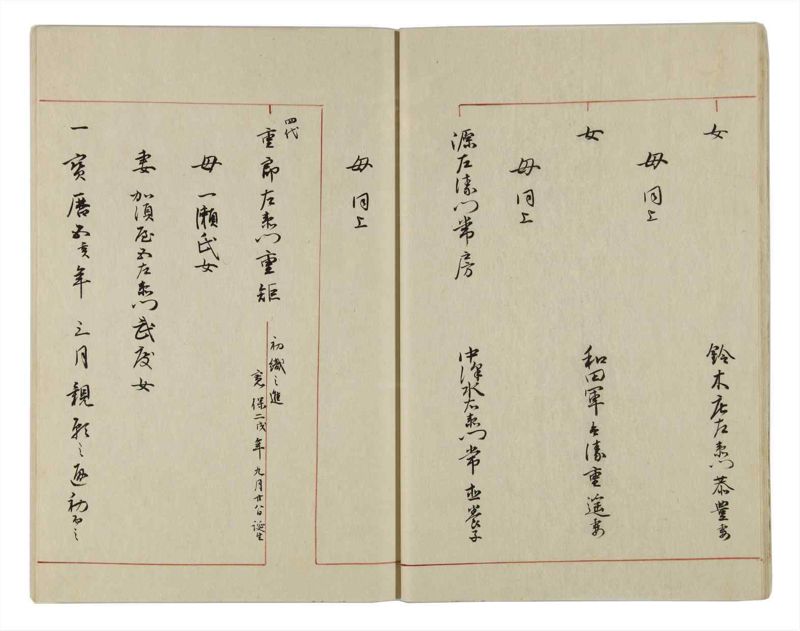 女
鈴木庄左衛門恭豊妻
母同上
女
和田軍兵衛重遥妻
母同上
源左衛門常房
中澤水右衛門常 養子
母同上
四代
重郎左衛門重矩
初織之進
寛保二戌年九月廿八日誕生
母一瀬氏女
妻加須屋五左衛門武度女
一寳暦五亥年三月親願之通初而之